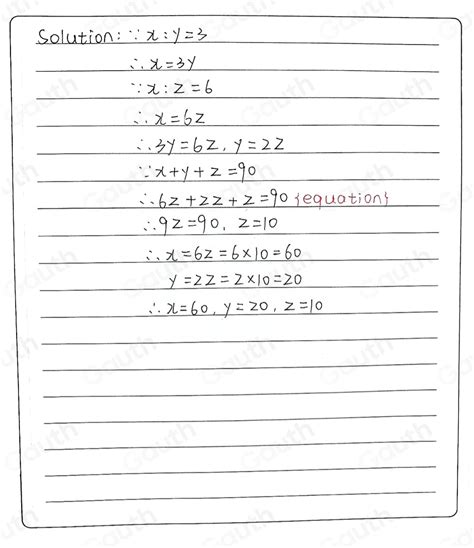 Solution: ∵ x : y = 3
∴ x = 3y
∵ x : z = 6
∴ x = 6z
∴ 3y = 6z, y = 2z
∵ x + y + z = 90
∴ 6z + 2z + z = 90 {equation}
∴ 9z = 90, z = 10
∴ x = 6z = 6 × 10 = 60
y = 2z = 2 × 10 = 20
∴ x = 60, y = 20, z = 10
Gauth